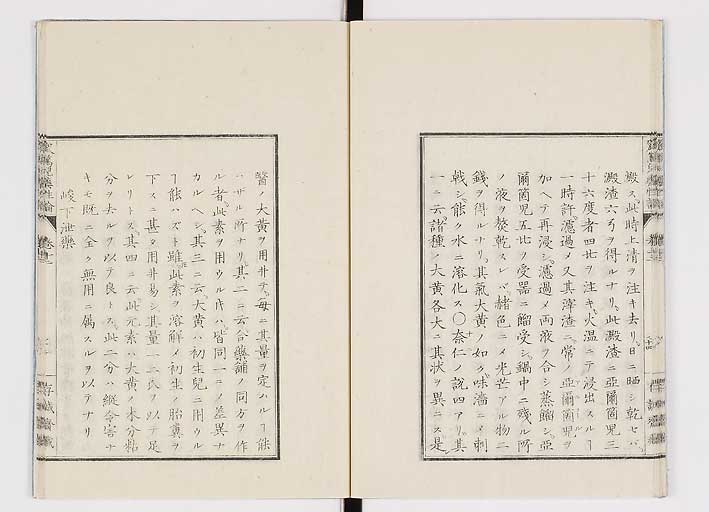 澱ス此時上清ヲ注キ去リ日ニ晒シ乾セバ
澱渣六弓ヲ得ルナリ此澱渣ニ亞爾箇児三
十六度者四比ヲ注キ火温ニテ浸出スルヿ
一時許濾過メ又其滓渣ニ常ノ亞爾箇児ヲ
加ヘテ再浸シ濾過メ両液ヲ合シ蒸餾シ亞
爾箇児五比ヲ受器ニ餾受シ鍋中ニ残ル所
ノ液ヲ熬乾スレバ赭色ニメ光芒アル物二
錢ヲ得ルナリ其氣大黄ノ如ク味濇ニメ刺
戟シ能ク水ニ溶化ス〇奈仁ノ説四アリ其
一ニ云諸種ノ大黄各大ニ其状ヲ異ニス是
醫ノ大黄ヲ用井テ毎ニ其量ヲ定ハルヿ能
ハザル所ナリ其二ニ云合藥舗ノ同方ヲ作
ル者此素ヲ用ウル片ハ皆同一ニメ差異ナ
カルヘシ其三ニ云大黄ハ初生兒ニ用ウル
ヿ能ハズト雖此素ヲ溶解メ初生ノ胎糞ヲ
下スニ甚タ用井易シ其量一二氏ヲ以テ足
レリトス其四ニ云此元素ハ大黄ノ本分粘
分ヲ去ルヲ以テ良トス此二分ハ縦令害ナ
キモ既ニ全ク無用ニ属スルヲ以テナリ
峻下泄藥